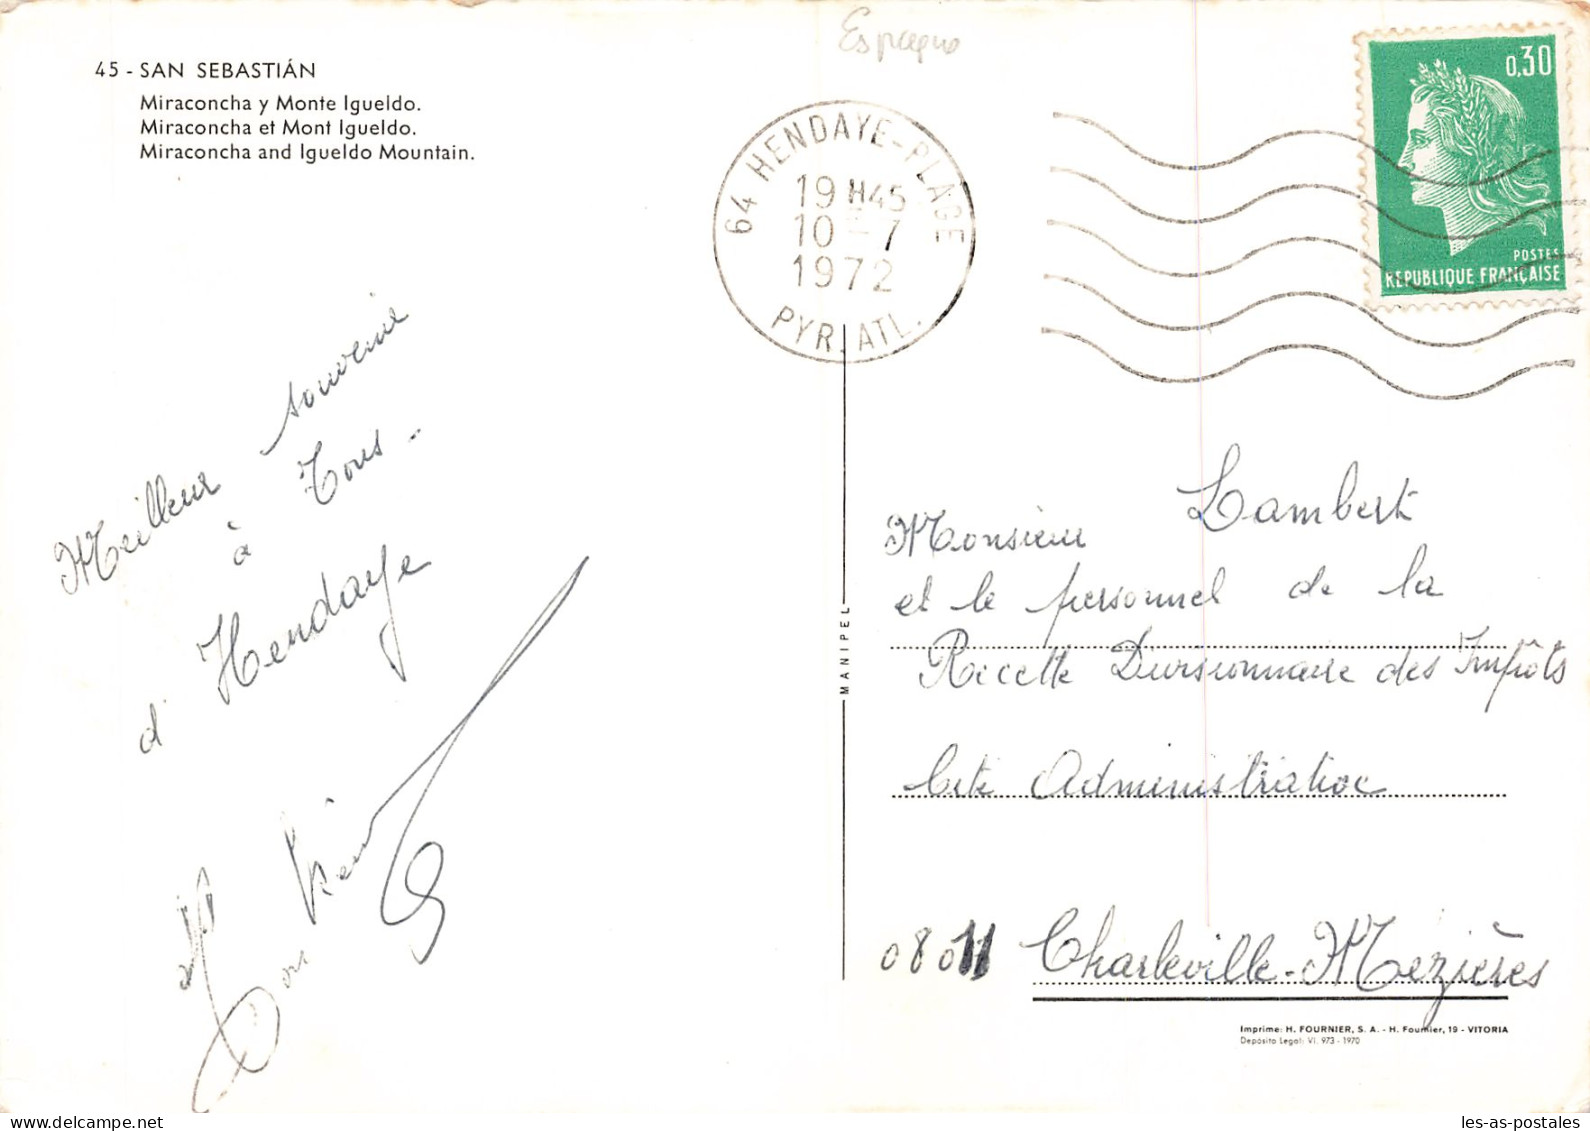 Espagne
45 - SAN SEBASTIÁN
Miraconcha y Monte Igueldo.
Miraconcha et Mont Igueldo.
Miraconcha and Igueldo Mountain.
64 HENDAYE-PLAGE
19 H45
10 - 7
1972
PYR. ATL.
0,30
POSTES
REPUBLIQUE FRANÇAISE
Meilleur souvenir
à Tous -
d'Hendaye
MANIPEL
Monsieur Lambert
et le personnel de la
Recette Divisionnaire des Impôts
Cité Administrative
08011 Charleville-Mézières
Imprime: H. FOURNIER, S. A. - H. Fournier, 19 - VITORIA
Depósito Legal: VI. 973 - 1970
les-as-postales